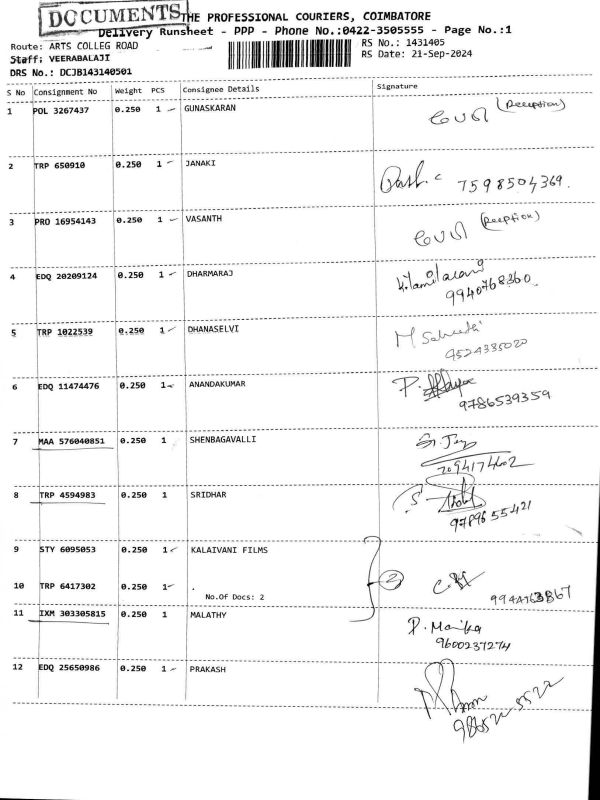 DOCUMENTS
THE PROFESSIONAL COURIERS, COIMBATORE
Delivery Runsheet - PPP - Phone No.:0422-3505555 - Page No.:1
Route: ARTS COLLEG ROAD RS No.: 1431405
Staff: VEERABALAJI RS Date: 21-Sep-2024
DRS No.: DCJB143140501
S No Consignment No Weight PCS Consignee Details Signature
1 POL 3267437 0.250 1 GUNASKARAN (Reception)
2 TRP 650910 0.250 1 JANAKI 7598504369.
3 PRO 16954143 0.250 1 VASANTH (Reception)
4 EDQ 20209124 0.250 1 DHARMARAJ K.Tamilarani
9940768360
5 TRP 1022539 0.250 1 DHANASELVI M
9524335020
6 EDQ 11474476 0.250 1 ANANDAKUMAR P.
9786539359
7 MAA 576040851 0.250 1 SHENBAGAVALLI
7094174602
8 TRP 4594983 0.250 1 SRIDHAR S
9789655421
9 STY 6095053 0.250 1 KALAIVANI FILMS
10 TRP 6417302 0.250 1 . 2
No.Of Docs: 2 9944763867
11 IXM 303305815 0.250 1 MALATHY P. Marika
9600237274
12 EDQ 25650986 0.250 1 PRAKASH